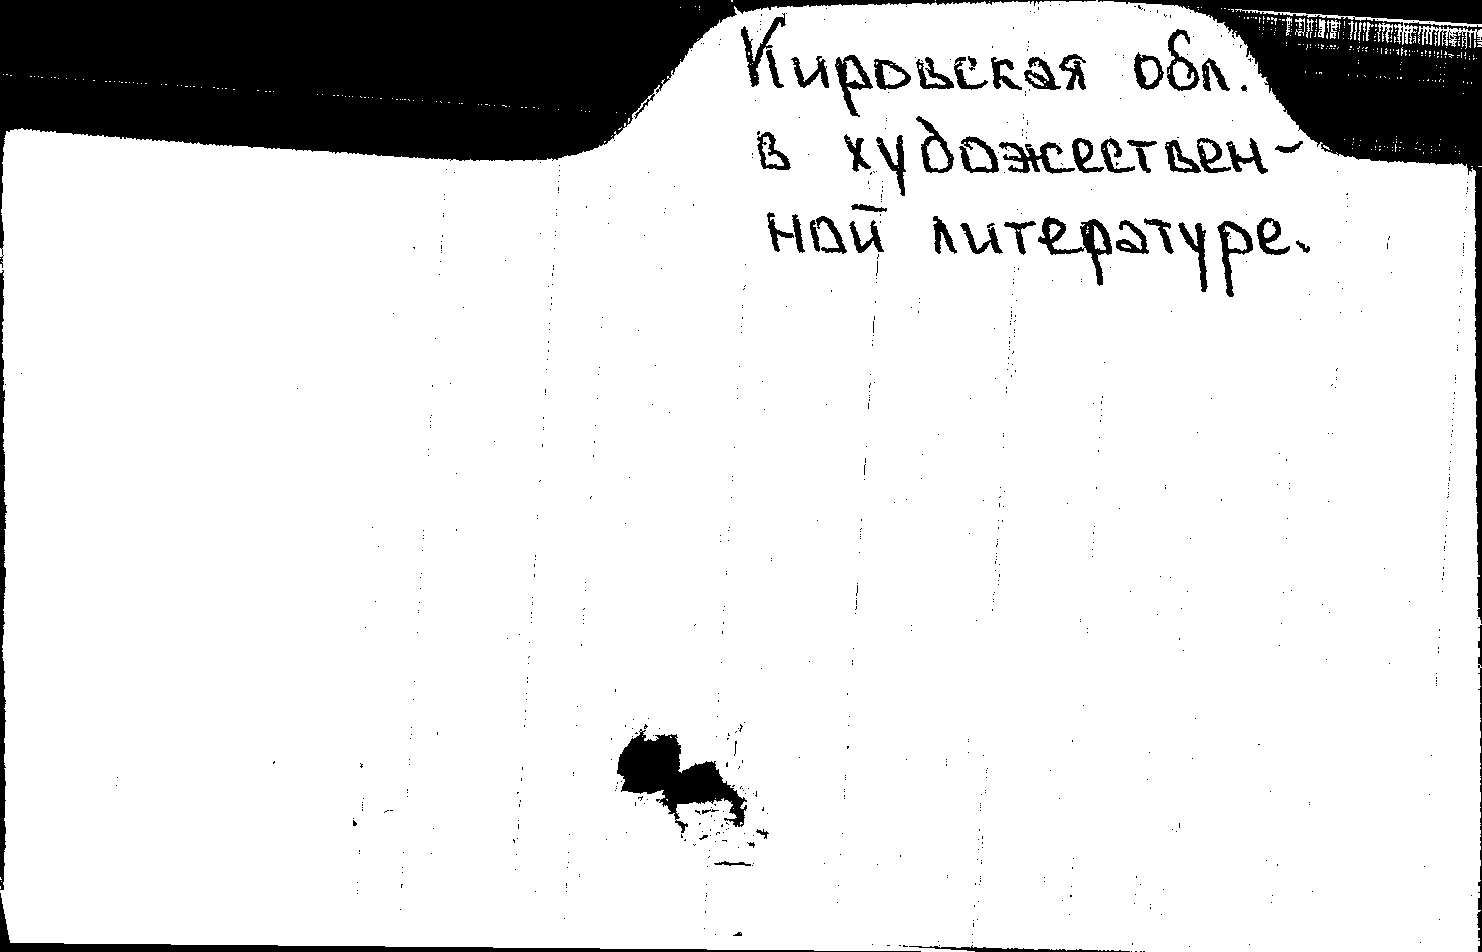 Кировская обл.
в художествен-
ной литературе.